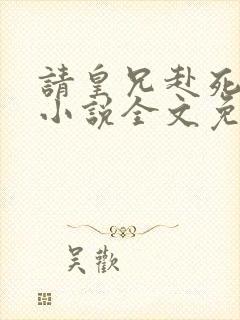 請皇兄赴死
小說全文免
吴歡